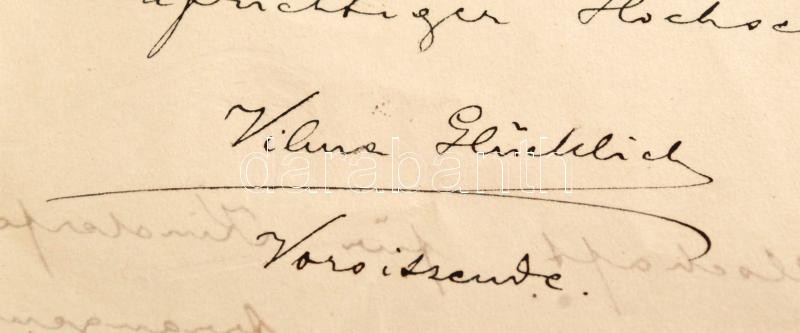 aufrichtiger Hochsc
Vilma Glücklich
darabanth
Vorsitzende.